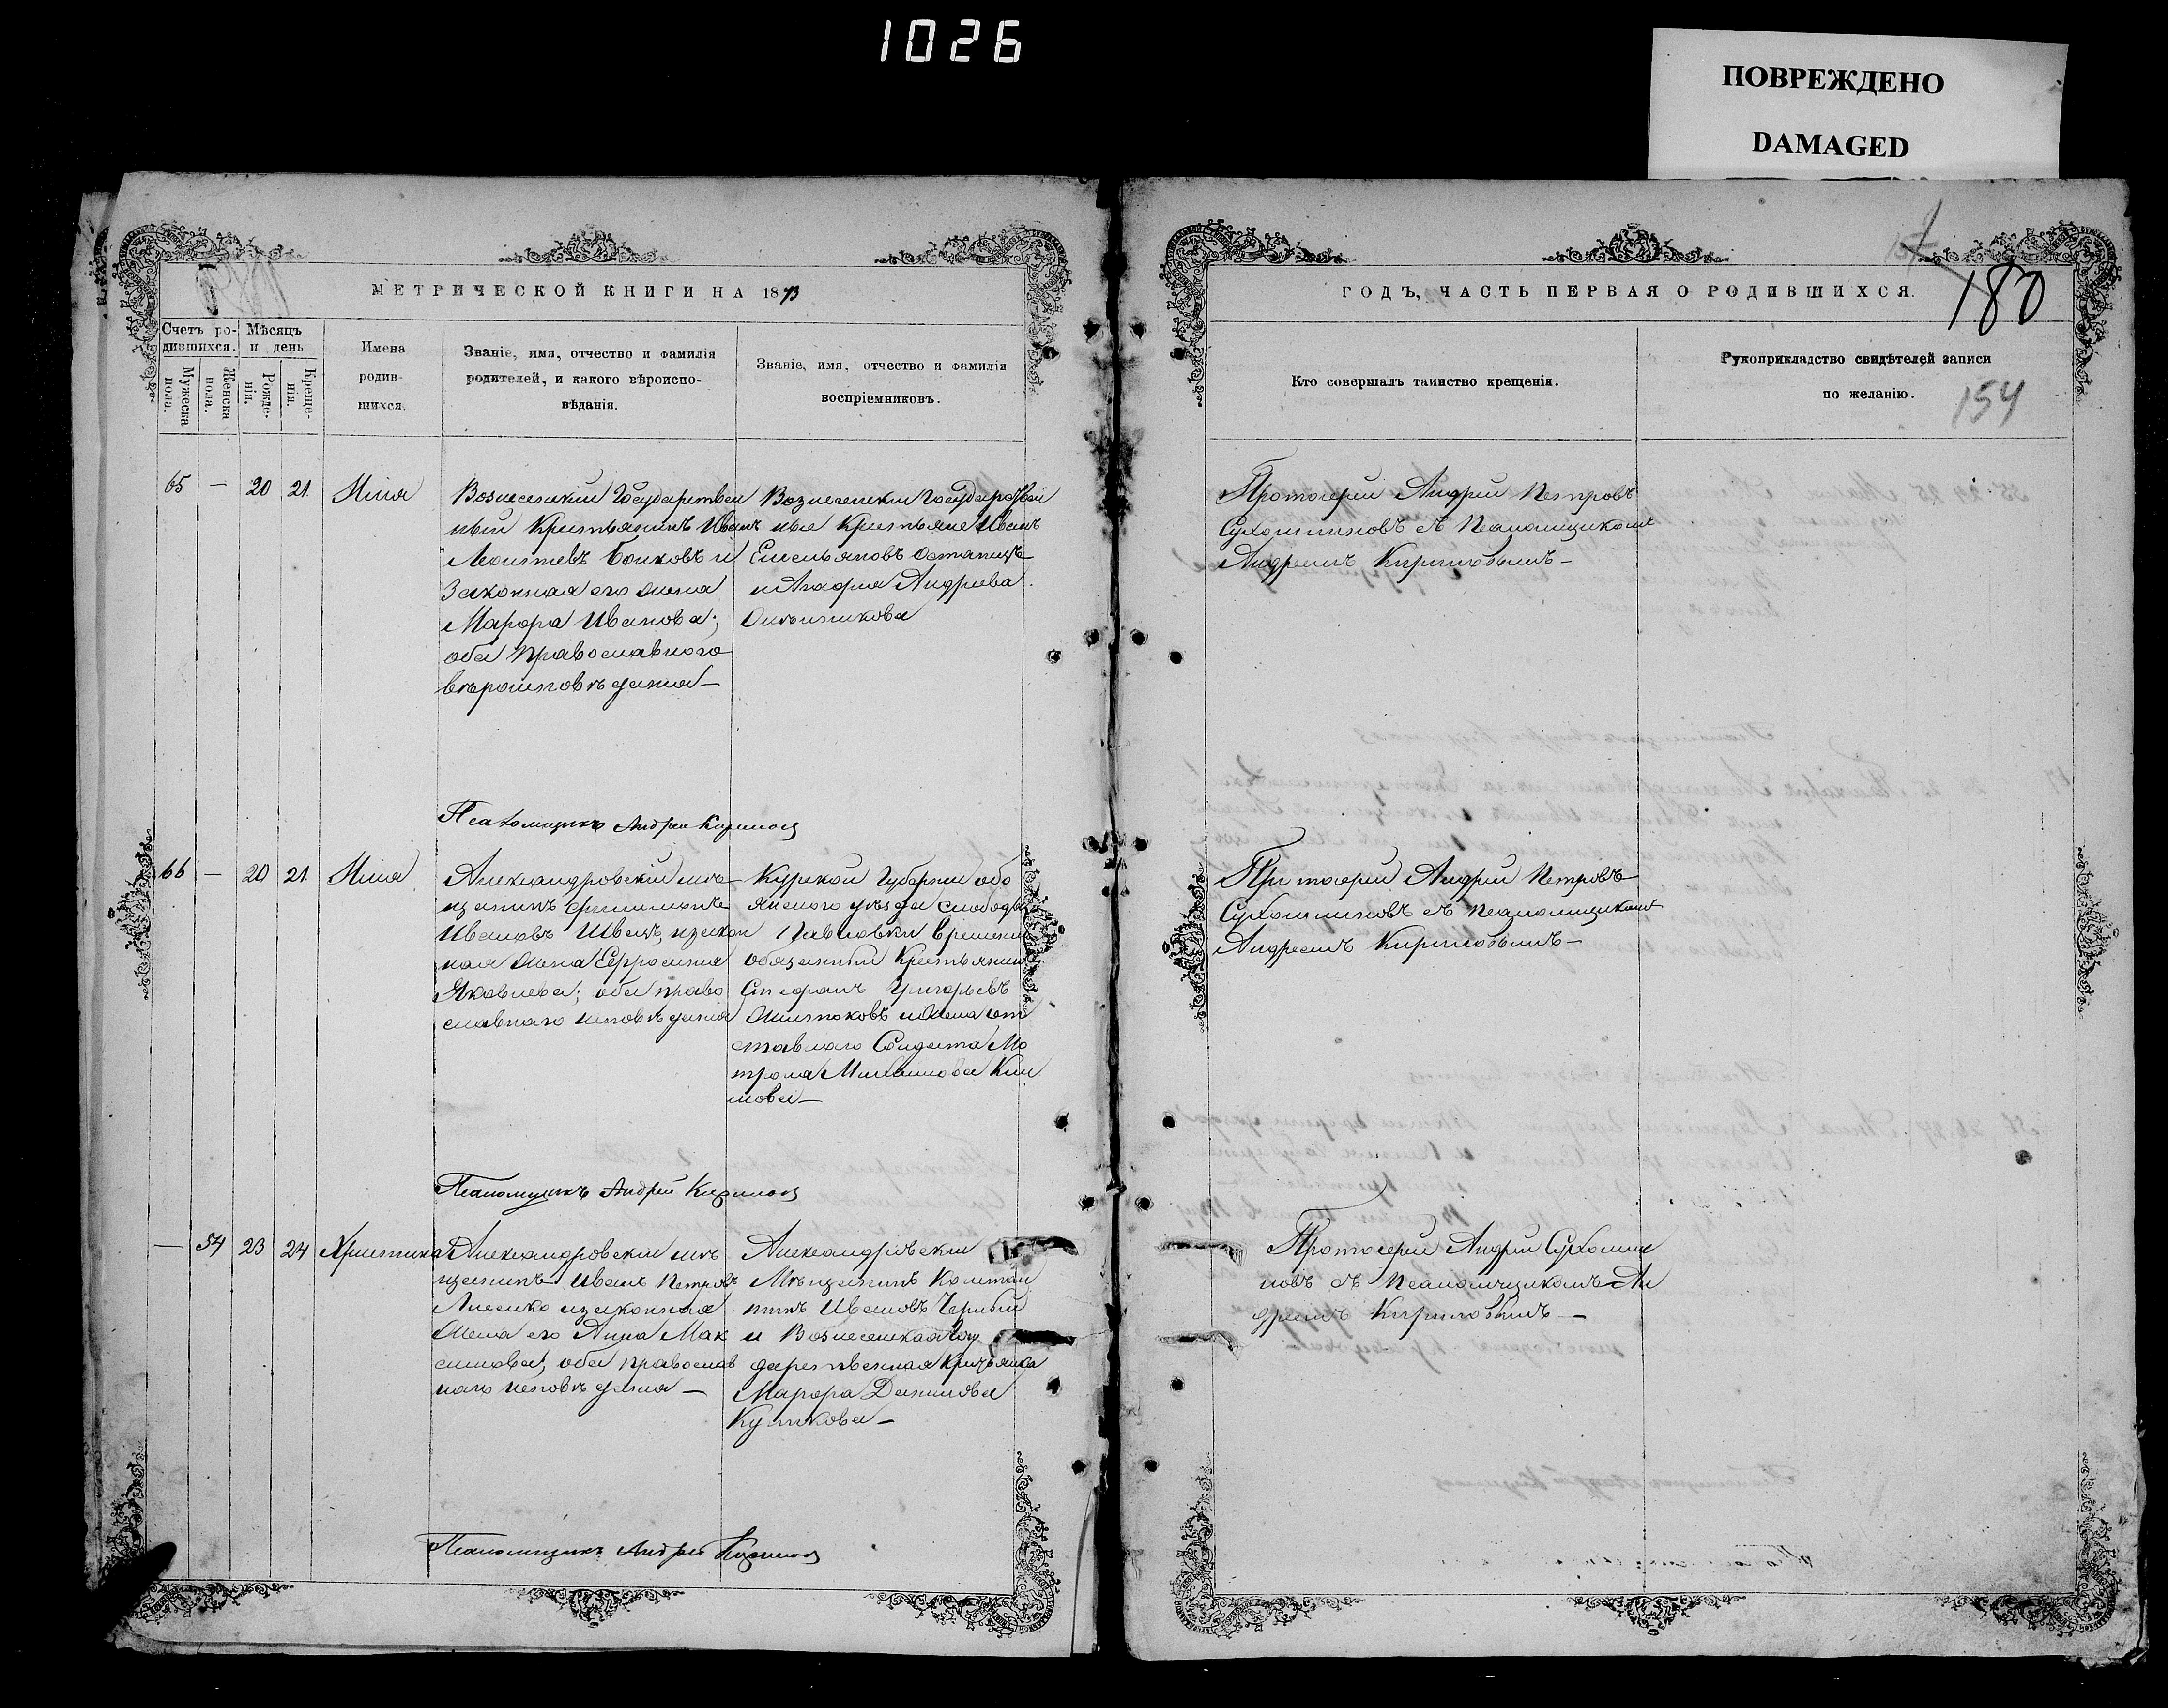 1026
ПОВРЕЖДЕНО
DAMAGED
МЕТРИЧЕСКОЙ КНИГИ НА 1873
Счетъ ро-
дившихся.
Мужеска
пола.
Женска
пола.
Мѣсяцъ
и день
Рожде-
нія.
Креще-
нія.
Имена
родив-
шихся.
Званіе, имя, отчество и фамилія
родителей, и какого вѣроиспо-
вѣданія.
Званіе, имя, отчество и фамилія
воспріемниковъ.
65 — 20 21 Илія
Вознесенскій Государствен
ный Крестьянинъ Иванъ
Бойковъ и
Законная его жена
Марфа Иванова;
оба Православного
вѣроисповѣданія —
Вознесенски Государствен
ные Крестьяне Иванъ
Емельяновъ
и Агафія Андреева
Псаломщикъ Андрей Кирилов
66 — 20 21 Илія
Александровскій мѣ
щанинъ Филимонъ
Ивановъ Швецъ, изакон
ная жена Евфросинія
Яковлева; оба право
славнаго исповѣданія
Курской Губерніи обо
янского уѣзда слободы
Павловки временно
обязанный Крестьянин
Стефанъ Григорьевъ
и жена от
ставного Солдата Ма
трона Михайлова Кли
мова —
Псаломщикъ Андрей Кирилов
— 54 23 24 Христина
Александровскій мѣ
щанинъ Иванъ Петровъ
Лисенко изаконная
жена его Анна Мак
симова; оба православ
наго исповѣданія —
Александровскій
Мѣщанинъ Констан
тинъ Ивановъ Черный
и Вознесенская Госу
дарственная Крестьянка
Марфа Данилова
Куликова —
Псаломщикъ Андрей Кирилов
ГОДЪ, ЧАСТЬ ПЕРВАЯ О РОДИВШИХСЯ.
180
Кто совершалъ таинство крещенія.
Рукоприкладство свидѣтелей записи
по желанію.
154
Протоіерей Андрей Петровъ
Сухомлиновъ съ Псаломщикомъ
Андреемъ Кириловымъ —
Протоіерей Андрей Петровъ
Сухомлиновъ съ Псаломщикомъ
Андреемъ Кириловымъ —
Протоіерей Андрей Сухомли
новъ съ Псаломщикомъ Ан
дреемъ Кириловымъ —